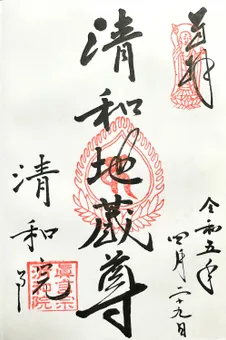 奉拝
令和五年
四月二十九日
清和地蔵尊
清和院